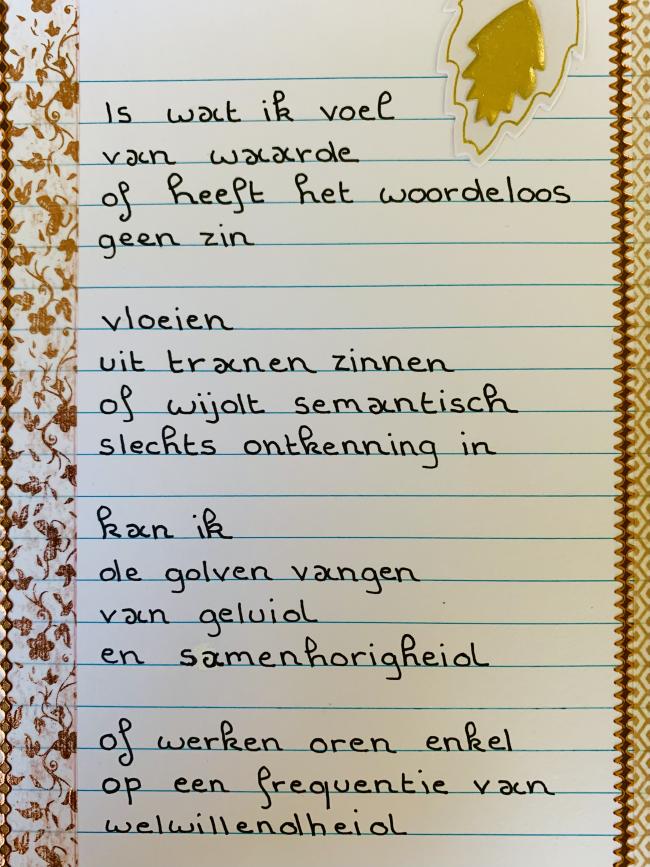 Is wat ik voel
van waarde
of heeft het woordeloos
geen zin
vloeien
uit tranen zinnen
of wijdt semantisch
slechts ontkenning in
kan ik
de golven vangen
van geluid
en samenhorigheid
of werken oren enkel
op een frequentie van
welwillendheid